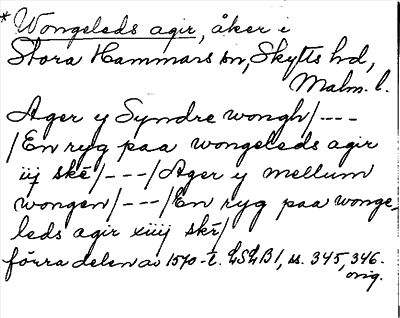 * Wongeleds agir, åker i
Stora Hammars sn, Skytts hd,
Malm. l.
Ager y Syndre wongh/----
/En ryg paa wongeleds agir
iij skē/---/Ager y mellum
wongen/---/En ryg paa wonge-
leds agir xiiij skē/
förra delen av 1570-t. LSLB1, ss. 345, 346.
orig.